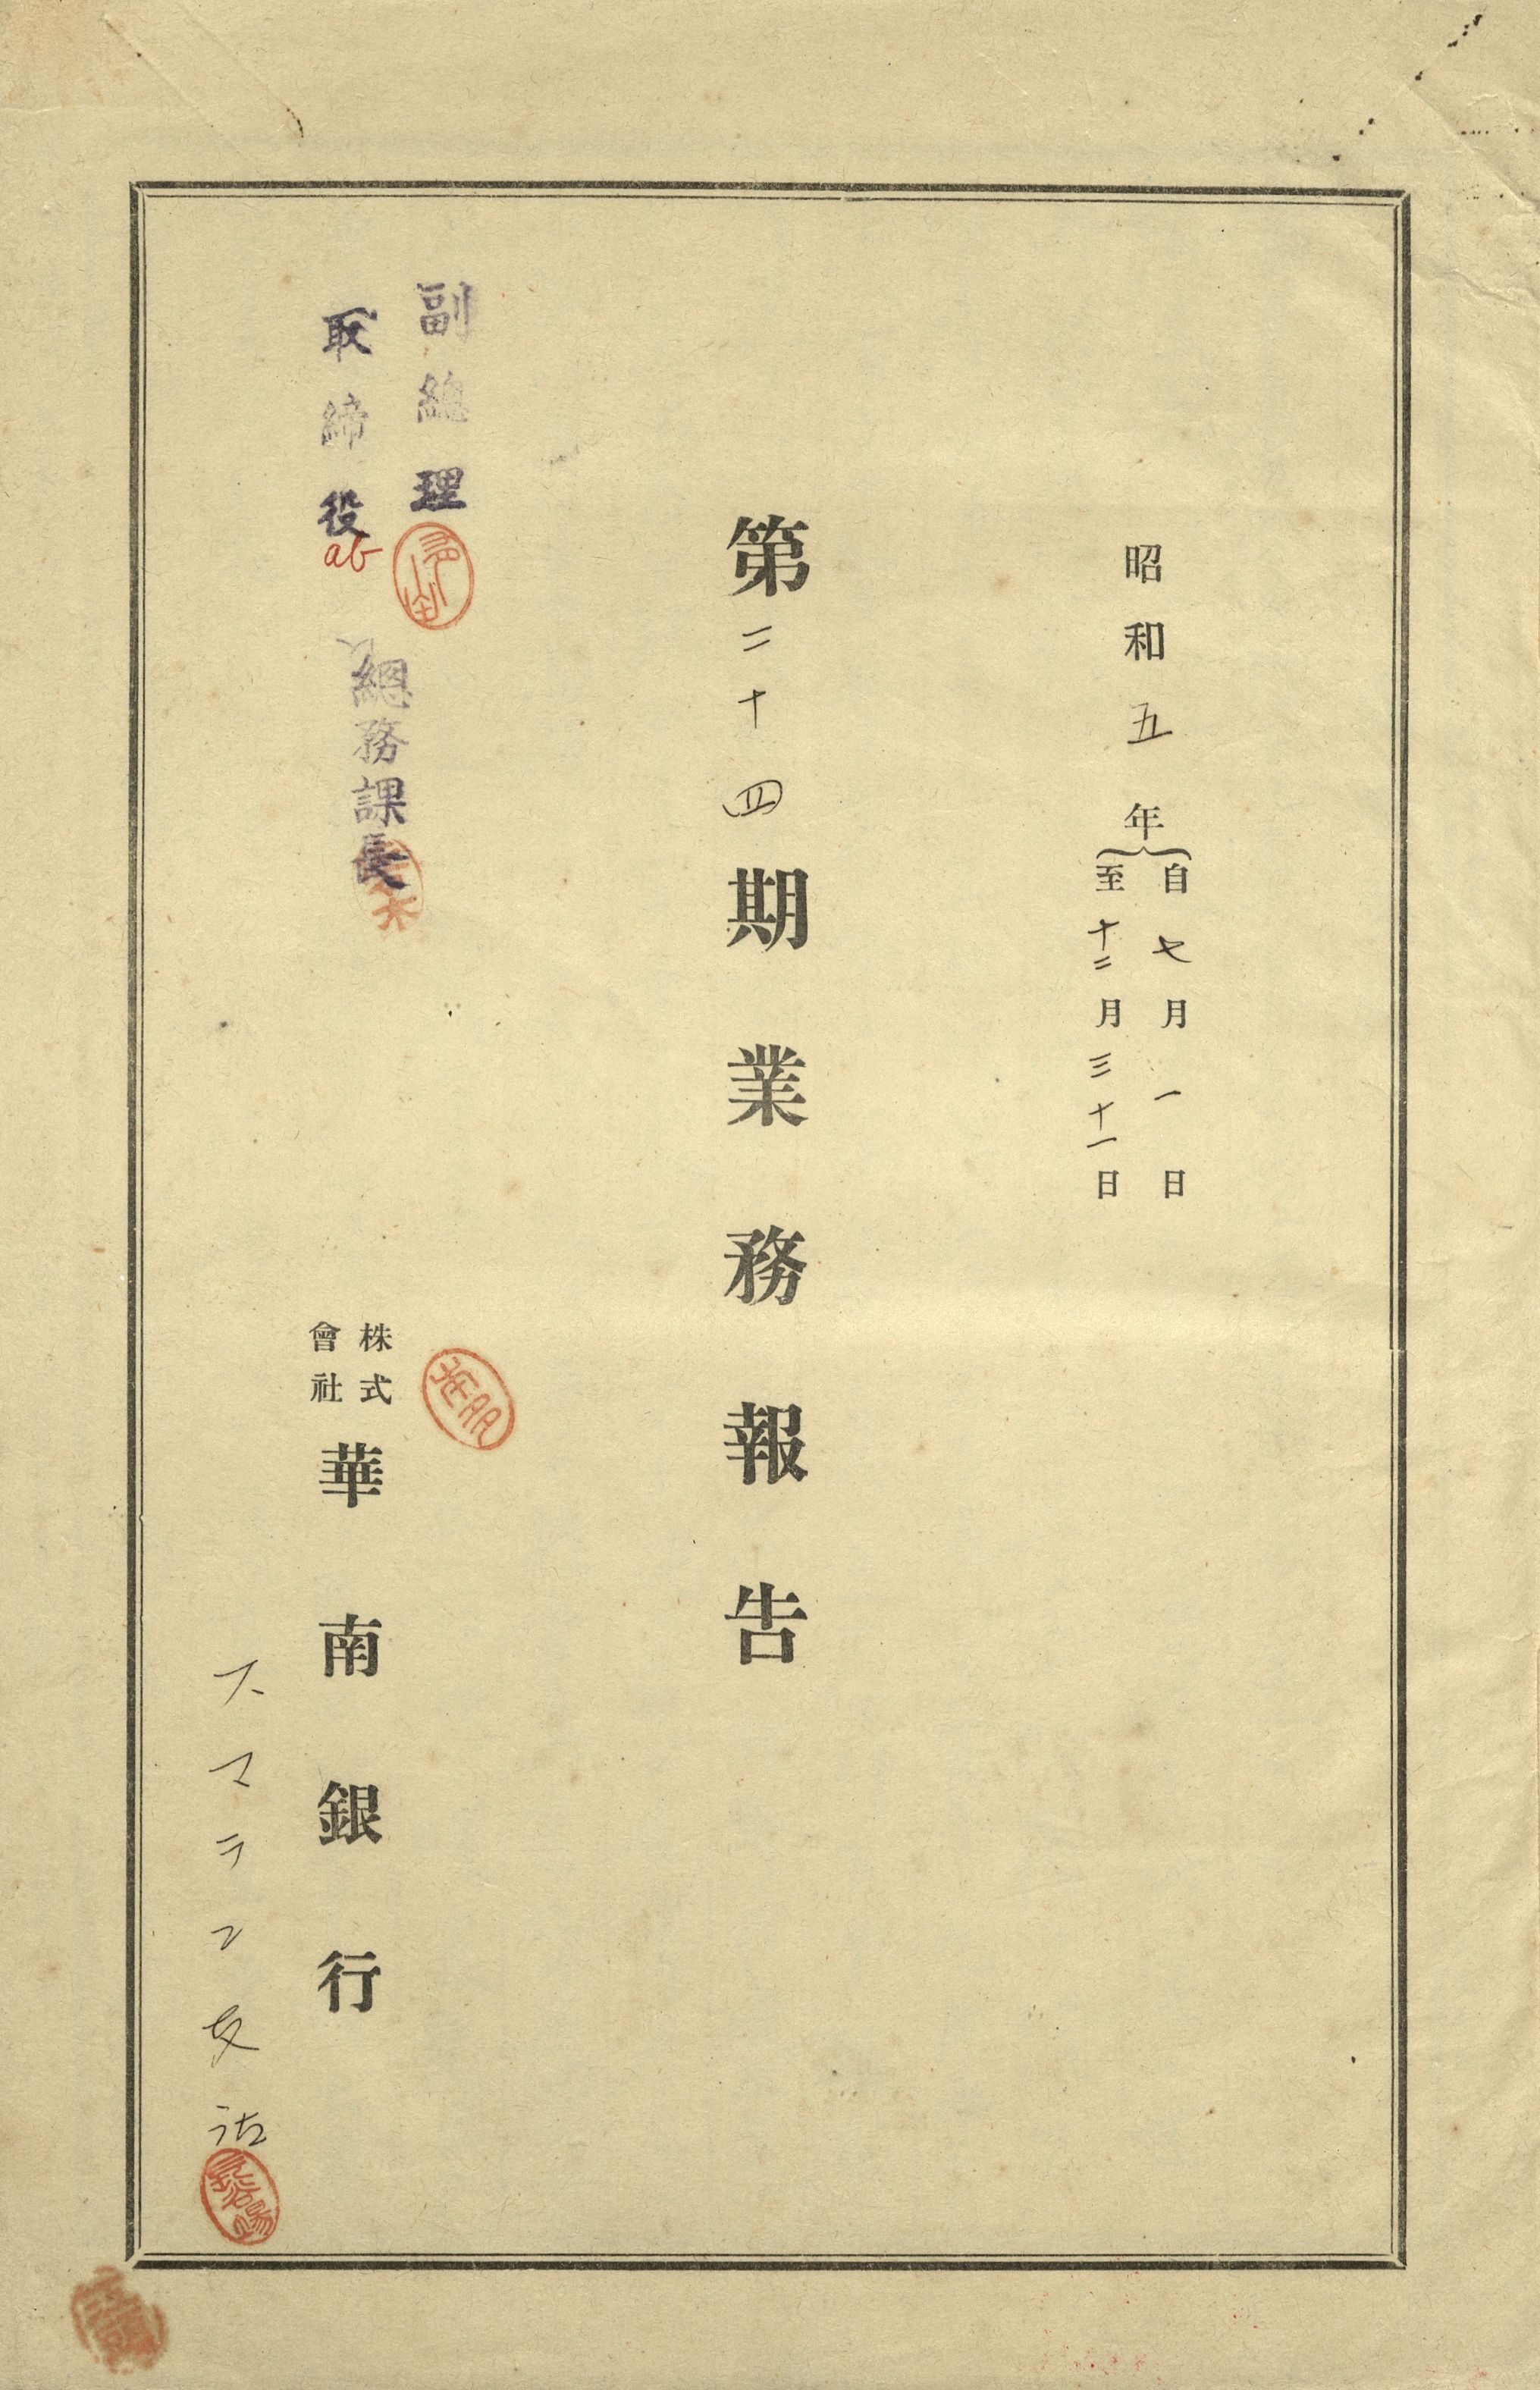 昭和五年
自七月一日
至十二月三十一日
第二十四期業務報告
副總理
取締役
ab
總務課長
株式
會社
華南銀行
スマラン支店